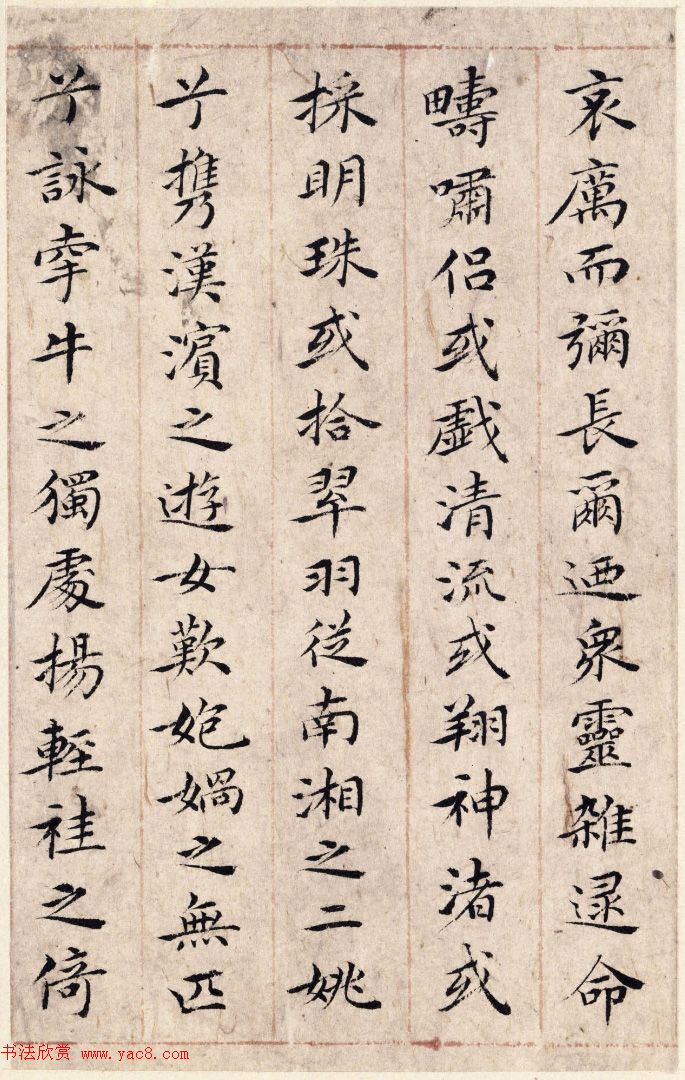 哀厲而彌長爾迺衆靈雜遝命
疇嘯侣或戯清流或翔神渚或
採明珠或拾翠羽從南湘之二姚
兮携漢濱之遊女歎媧之無匹
兮詠牽牛之獨處揚輕袿之倚
书法欣赏 www.yac8.com